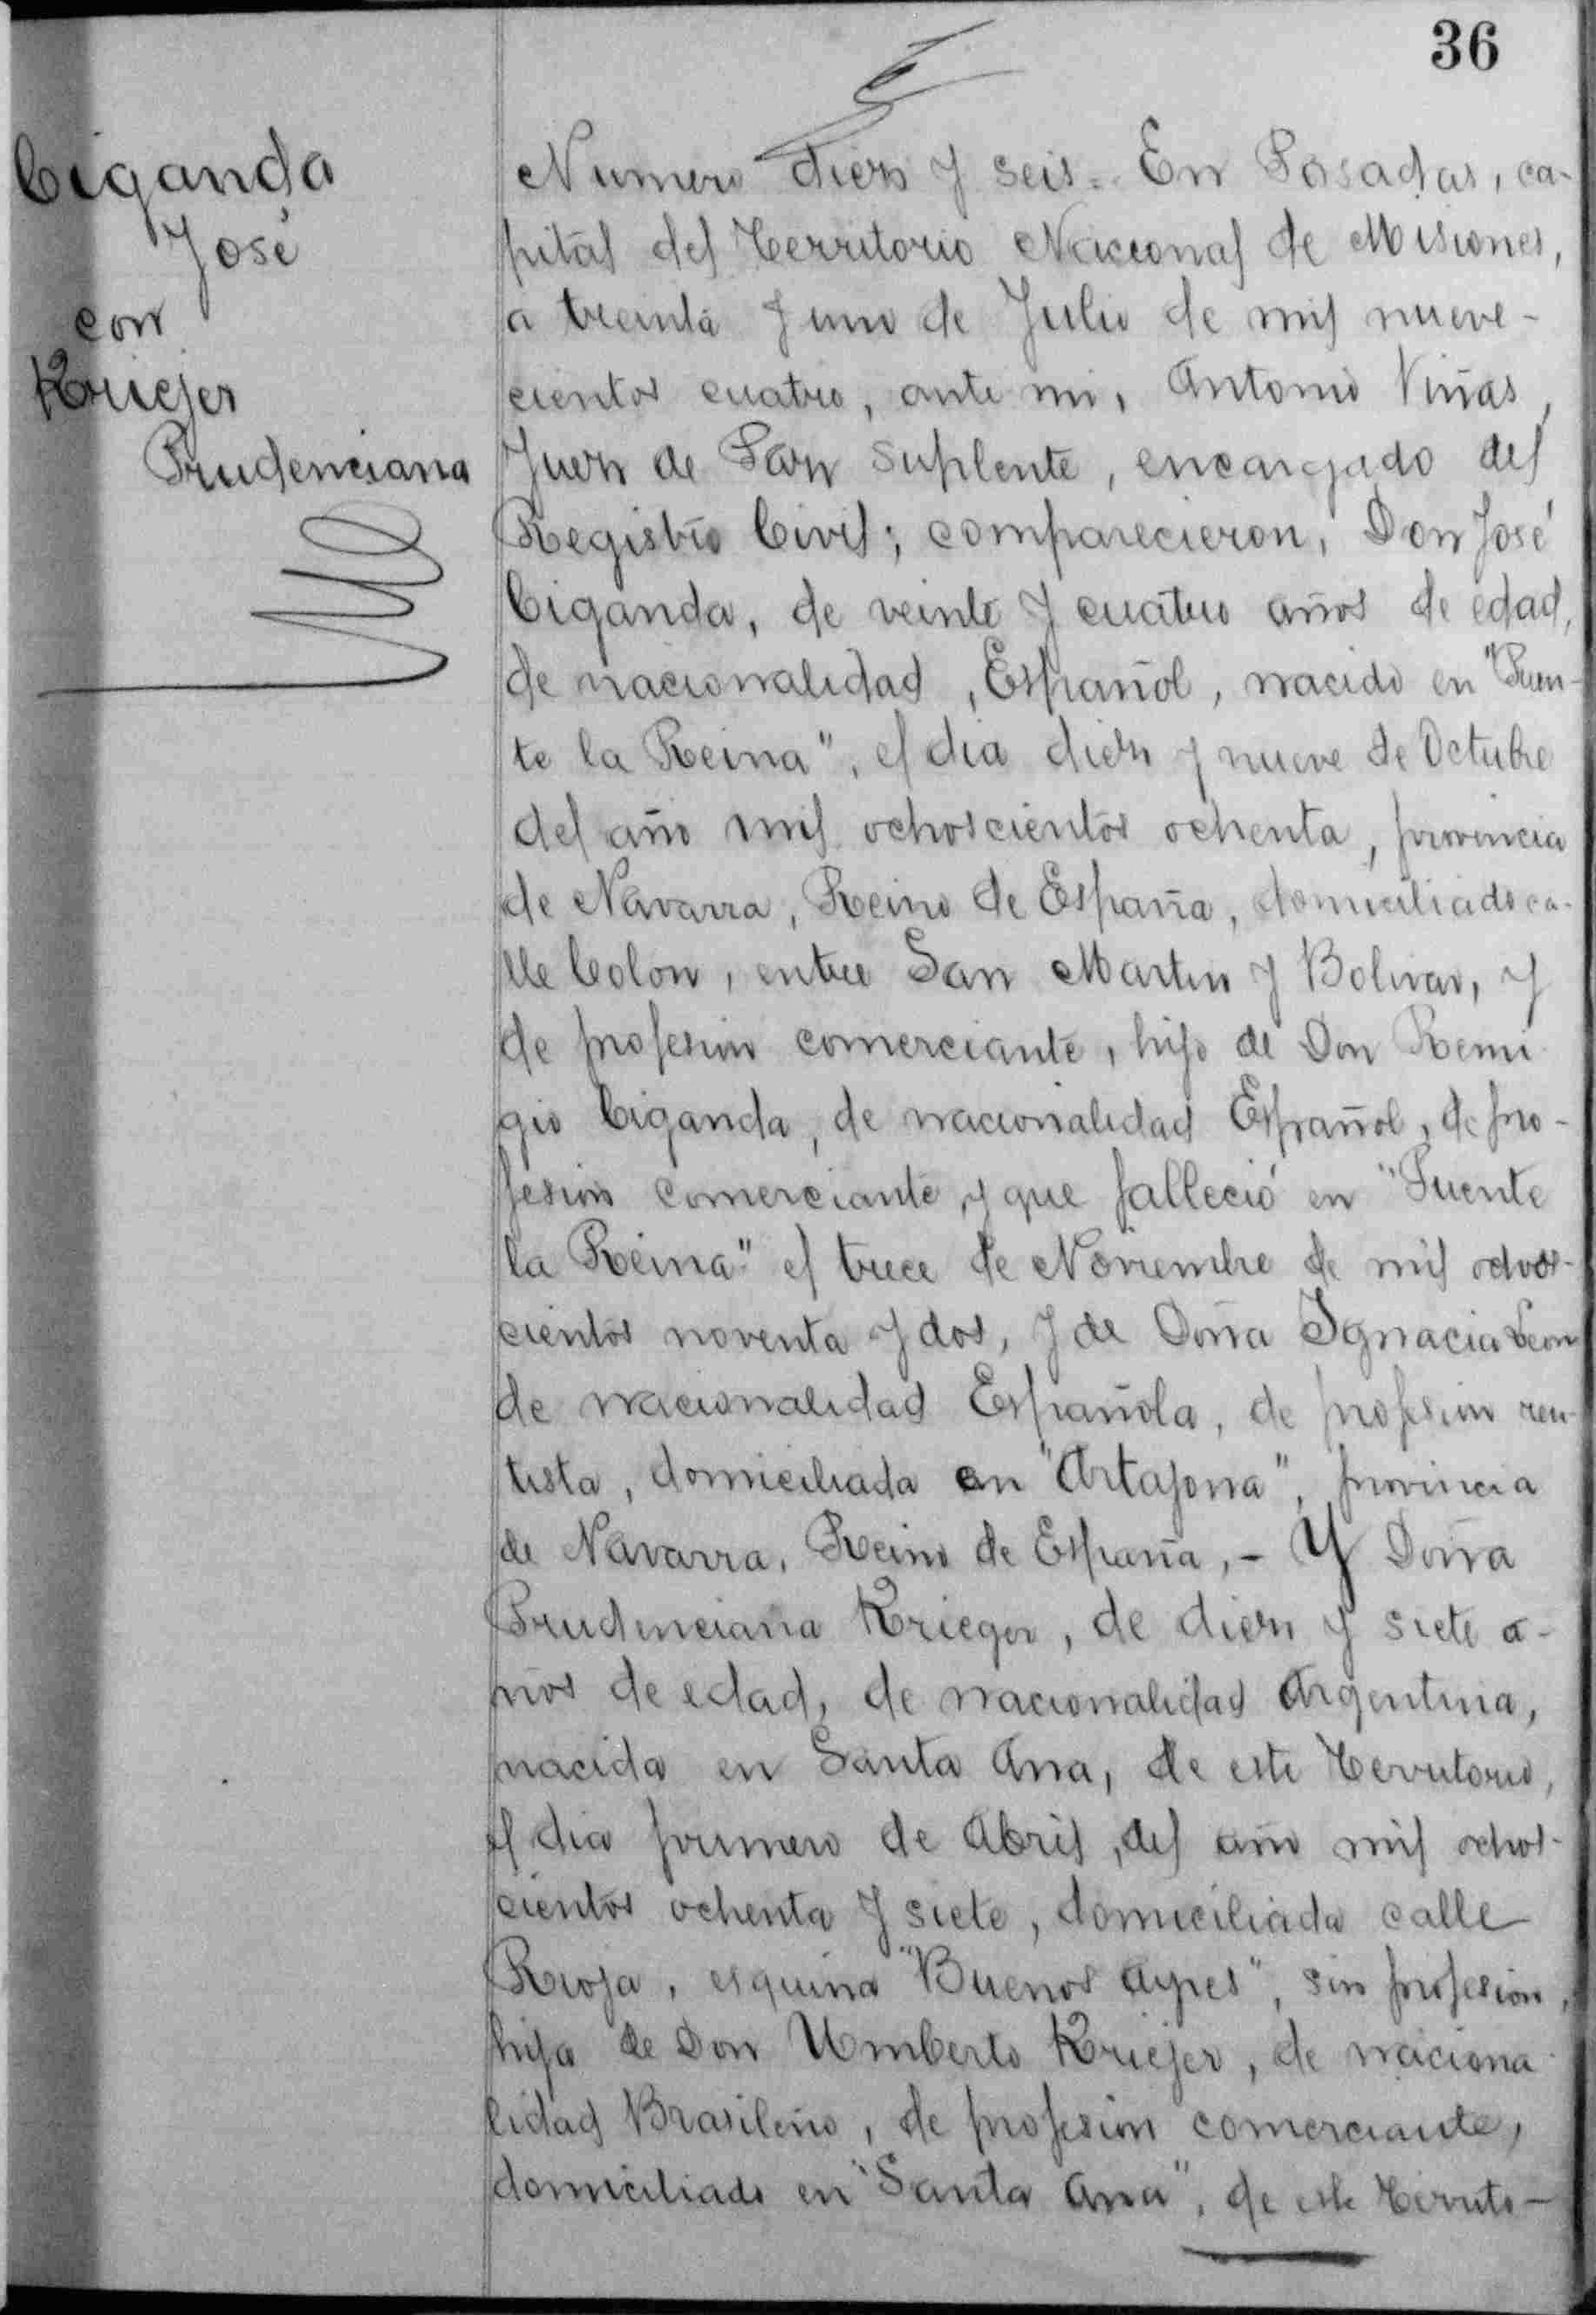 36
Ciganda
José
con
Kriejer
Prudenciana
Numero diez y seis = En Posadas, ca-
pital del Territorio Nacional de Misiones,
a treinta y uno de Julio de mil nueve-
cientos cuatro, ante mi, Antonio Viñas,
Juez de Paz suplente, encargado del
Registro Civil; comparecieron, Don José
Ciganda, de veinte y cuatro años de edad,
de nacionalidad, Español, nacido en "Puen-
te la Reina", el dia diez y nueve de Octubre
del año mil ochoscientos ochenta, provincia
de Navarra, Reino de España, domiciliado ca-
lle Colon, entre San Martin y Bolivar, y
de profesion comerciante, hijo de Don Remi-
gio Ciganda, de nacionalidad Español, de pro-
fesion comerciante, y que falleció en "Puente
la Reina" el trece de Noviembre de mil ochos-
cientos noventa y dos, y de Doña Ignacia Leon
de nacionalidad Española, de profesion ren-
tista, domiciliada en "Artajona", provincia
de Navarra, Reino de España, - Y Doña
Prudenciana Krieger, de diez y siete a-
ños de edad, de nacionalidad Argentina,
nacida en Santa Ana, de este Territorio,
el dia primero de Abril, del año mil ochos-
cientos ochenta y siete, domiciliada calle
Rioja, esquina "Buenos Ayres", sin profesion,
hija de Don Umberto Kriejer, de naciona-
lidad Brasileño, de profesion comerciante,
domiciliado en "Santa Ana", de este Territo-